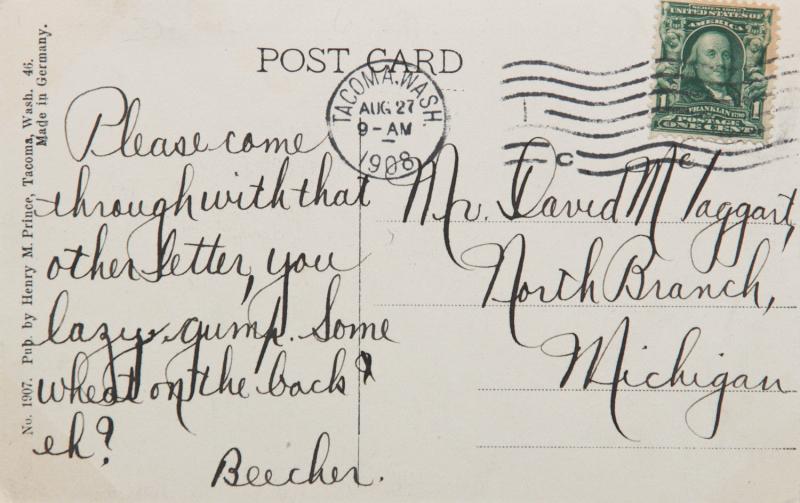 No. 1907. Pub. by Henry M. Prince, Tacoma, Wash. 46.
Made in Germany.
POST CARD
TACOMA, WASH.
AUG 27
9-AM
1908
SERIES 1902
UNITED STATES OF
AMERICA
1 1
FRANKLIN
POSTAGE
ONE CENT
Please come
through with that
other letter, you
lazy gump. Some
wheat on the back
eh?
Beecher.
Mr. David McTaggart,
North Branch,
Michigan